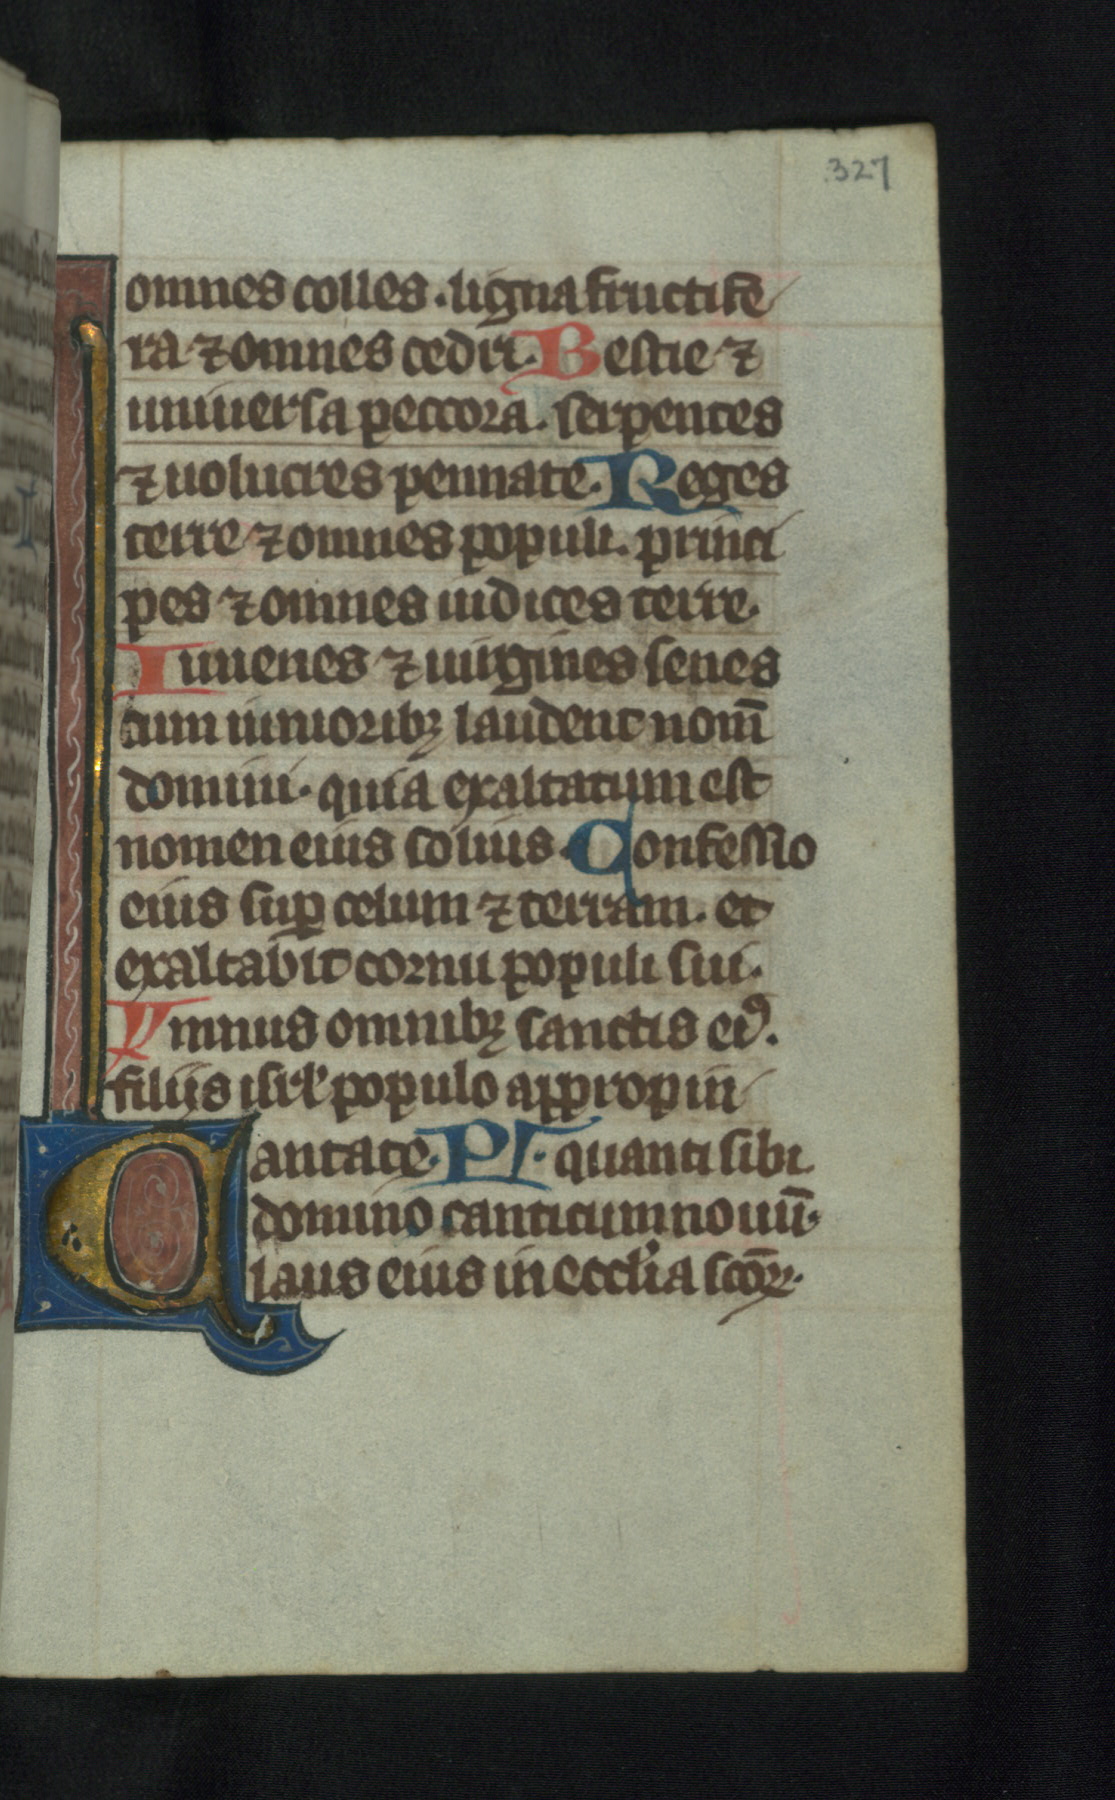 327
omnes colles. ligna fructife
ra ⁊ omnes cedri. Bestie ⁊
uniuersa peccora. serpentes
⁊ uolucres pennate. Reges
terre ⁊ omnes populi. princi
pes ⁊ omnes iudices terre.
Iuuenes ⁊ uirgines senes
cum iunioribꝫ laudent nom̅
domini. quia exaltatum est
nomen eius solius. Confessio
eius suꝑ celum ⁊ terram. et
exaltabit cornu populi sui.
Ymnus omnibꝫ sanctis eiꝰ.
filijs isrl' populo appropin
Cantate. Ps. quanti sibi.
domino canticum nouu̅.
laus eius in eccl'ia sco̅ꝝ.